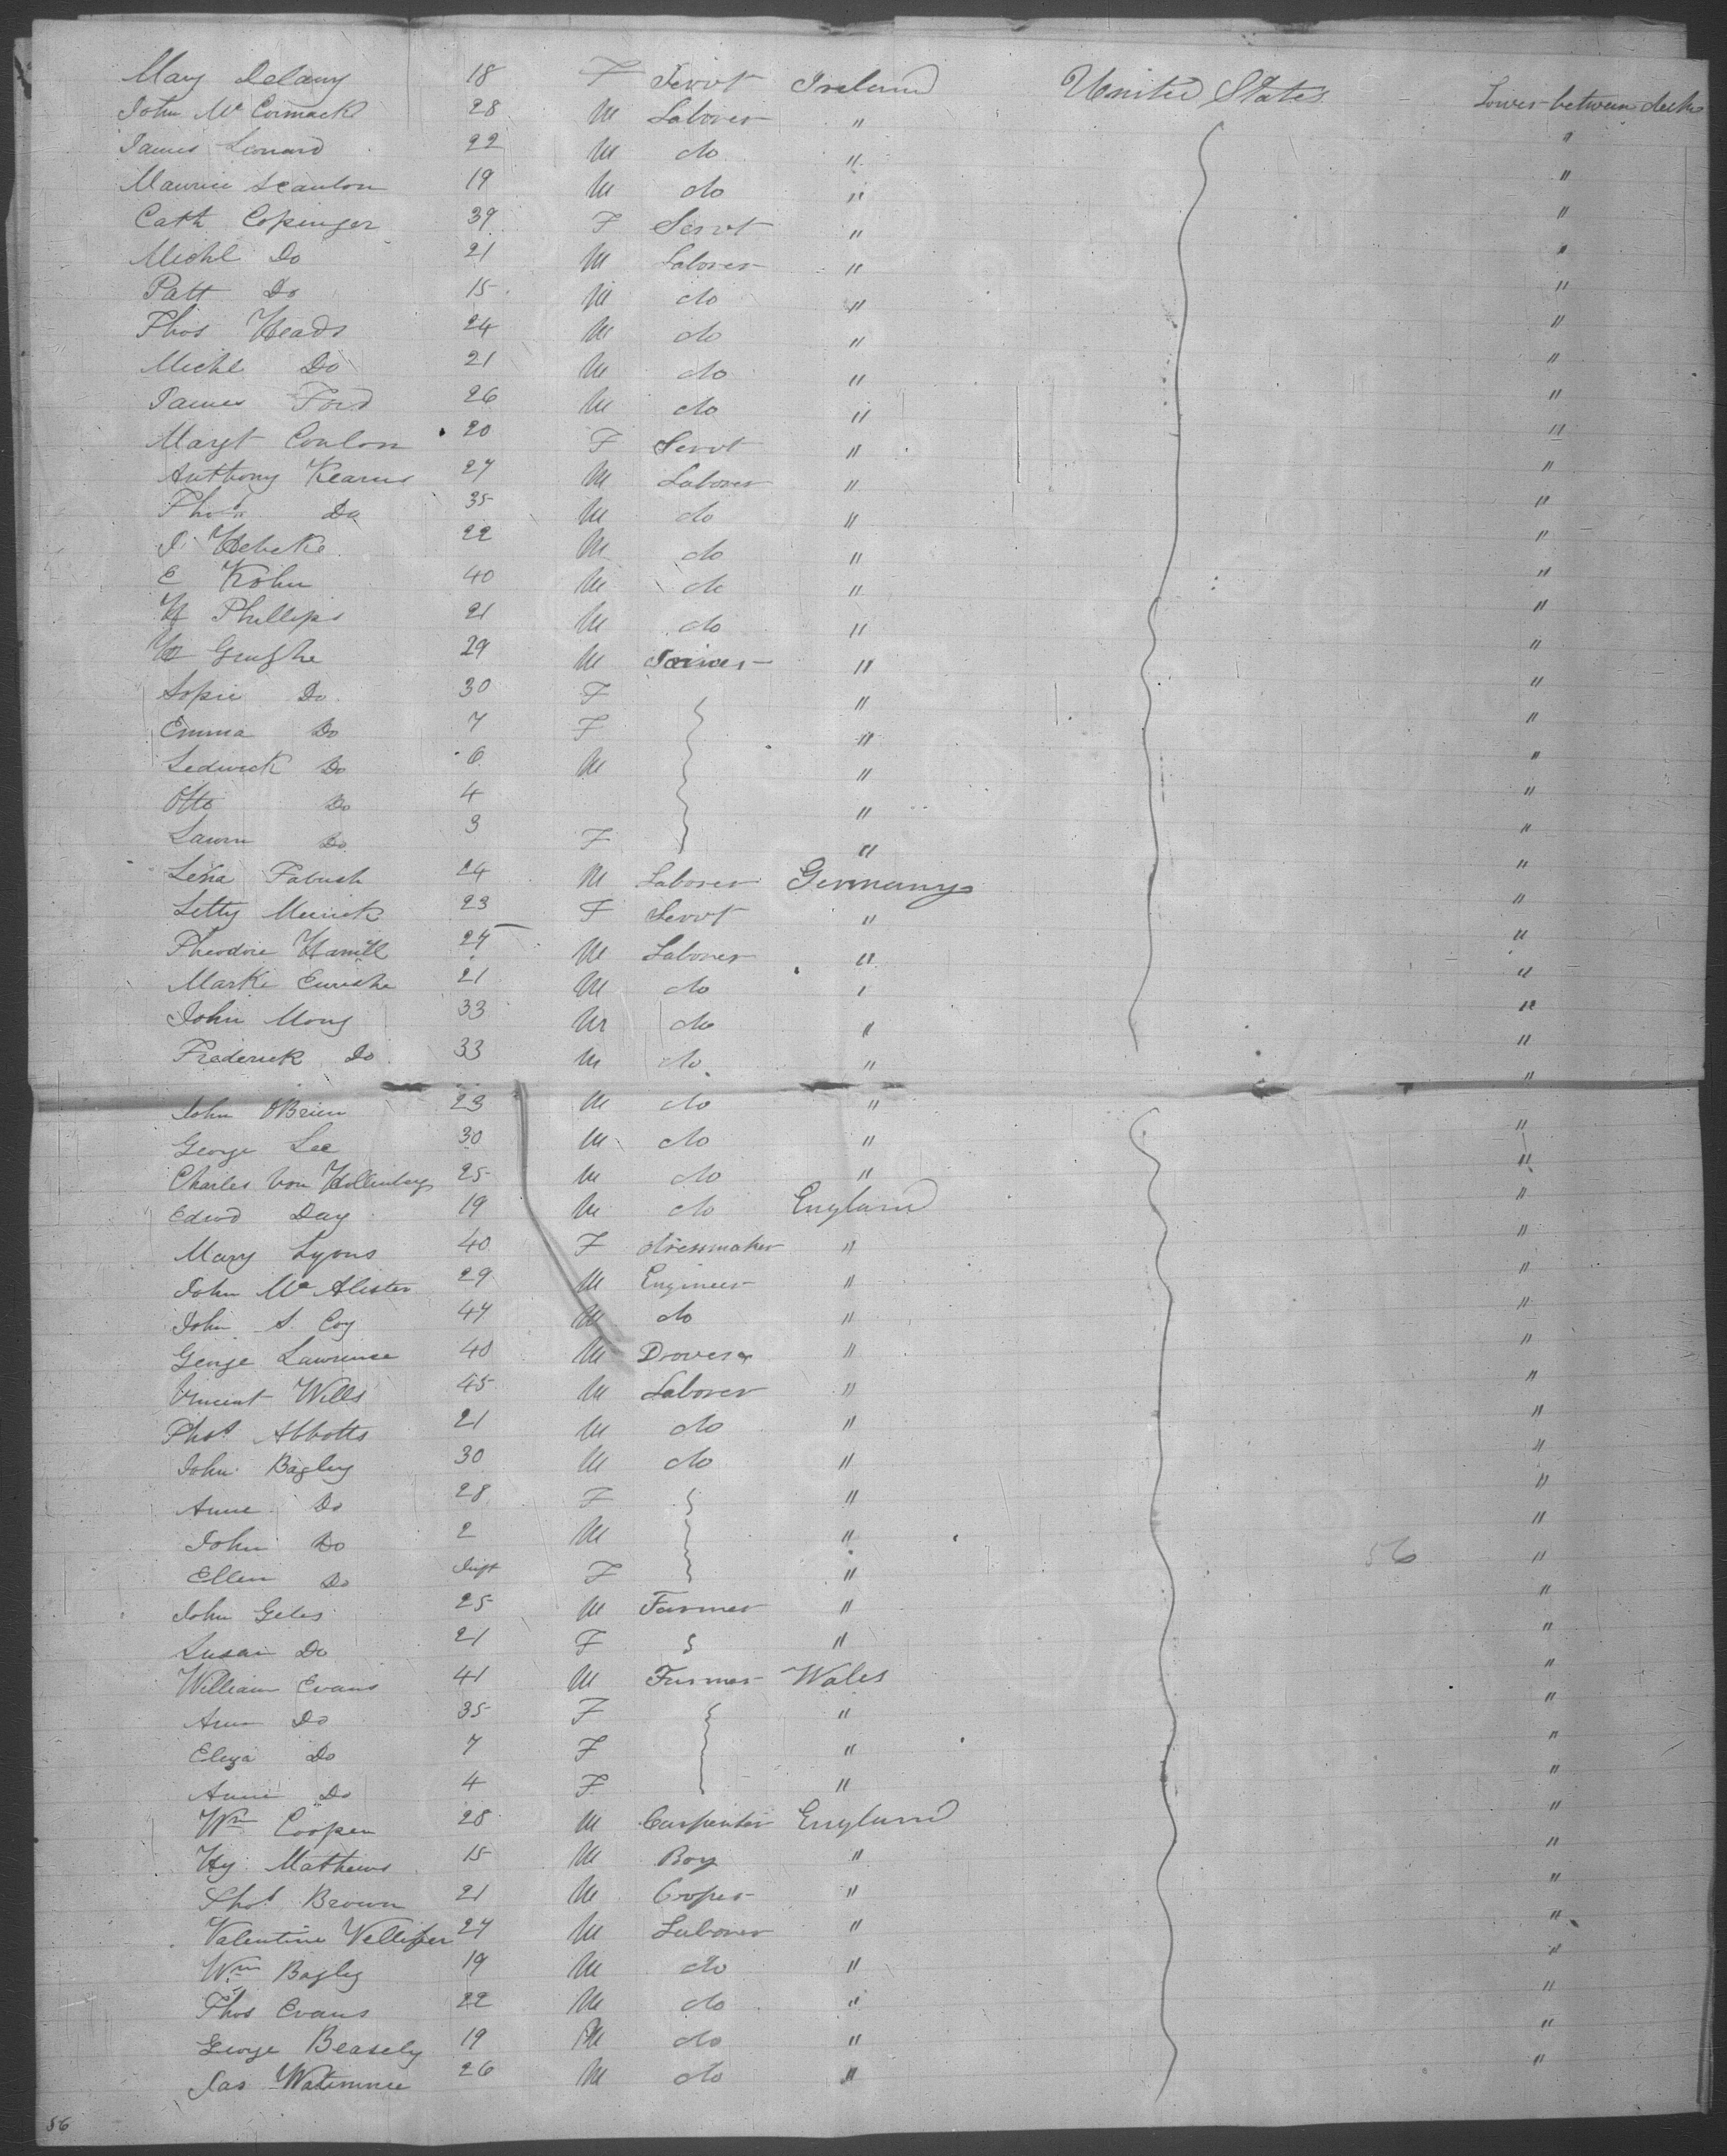 Mary Delany 18 F Servt Ireland United States Lower between decks
John McCormack 28 M Laborer " "
James Leonard 22 M do " "
Maurice Scanlon 19 M do " "
Cath Copinger 39 F Servt " "
Michl Do 21 M Laborer " "
Patt Do 15 M do " "
Thos Heads 24 M do " "
Michl Do 21 M do " "
James Ford 26 M do " "
Margt Conlon 20 F Servt " "
Anthony Kearns 27 M Laborer " "
Thos Do 35 M do " "
J 22 M do " "
E Kohn 40 M do " "
H Phillips 21 M do " "
29 M " "
Sopie Do 30 F " "
Emma Do 7 F " "
Do 6 M " "
Otto Do 4 " "
Do 3 F " "
Lena Fabush 24 M Laborer Germany "
Letty 23 F Servt " "
Theodore Hamill 27 M Laborer " "
21 M do " "
John Mong 33 M do " "
Frederick Do 33 M do " "
John OBrien 23 M do " "
George Lee 30 M do " "
Charles Von Hollenberg 25 M do " "
Edwd Day 19 M do England "
Mary Lyons 40 F dressmaker " "
John McAlister 29 M Engineer " "
John S. Coy 47 M do " "
George Lawrence 40 M Drover " "
Vincent Wills 45 M Laborer " "
Thos Abbotts 21 M do " "
John Bagley 30 M do " "
Anne Do 28 F " "
John Do 2 M " "
Ellen Do Inft F " 56 "
John Geles 25 M Farmer " "
Susan Do 21 F " "
William Evans 41 M Farmer Wales "
Ann Do 35 F " "
Eliza Do 7 F " "
Annie Do 4 F " "
Wm Cooper 28 M Carpenter England "
Hy Mathews 15 M Boy " "
Thos Brown 21 M Cooper " "
Valentine 27 M Laborer " "
Wm Bagley 19 M do " "
Thos Evans 22 M do " "
George Beasely 19 M do " "
Jas 26 M do " "
56